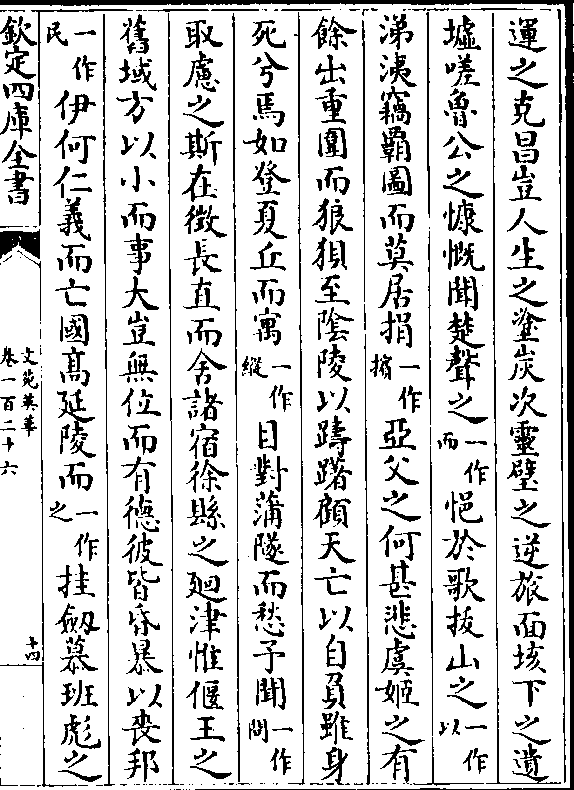 運之克昌豈人生之塗炭次靈壁之逆旅面垓下之遺
墟嗟魯公之慷慨聞楚聲之一作而悒於歌拔山之一作以
涕洟竊覇圖而莫居捐一作擯亞父之何甚悲虞姬之有
餘出重圍而狼狽至陰陵以躊躇顧天亡以自負雖身
死兮焉如登夏丘而寓一作縱目對蒲隧而愁予聞一作問
取慮之斯在徵長直而舍諸宿徐縣之廻津惟偃王之
舊域方以小而事大豈無位而有德彼皆昏暴以喪邦
一作民伊何仁義而亡國髙延陵而一作之挂劔慕班彪之
欽定四庫全書
文苑英華
卷一百二十六
十四